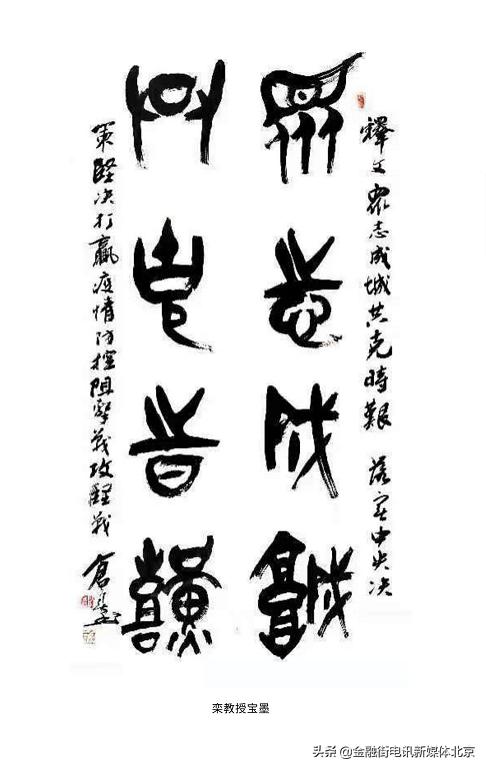 釋文眾志成城共克時艱 落實中央决
眾志成城
共克時艱
策堅决打贏疫情防控阻擊戰攻堅戰
栾教授宝墨
头条 @金融街电讯新媒体北京